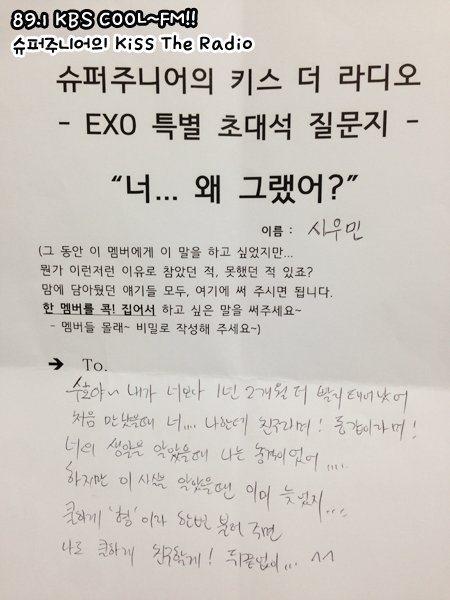 89.1 KBS COOL~FM!!
슈퍼주니어의 Kiss The Radio
슈퍼주니어의 키스 더 라디오
- EXO 특별 초대석 질문지 -
“너... 왜 그랬어?”
이름 : 시우민
(그 동안 이 멤버에게 이 말을 하고 싶었지만...
뭔가 이런저런 이유로 참았던 적, 못했던 적 있죠?
맘에 담아뒀던 얘기들 모두, 여기에 써 주시면 됩니다.
한 멤버를 콕! 집어서 하고 싶은 말을 써주세요~
- 멤버들 몰래~ 비밀로 작성해 주세요~)
➔ To.
야~ 내가 너보다 1년 2개월 더 빨리 태어났어
처음 만났을때 너.... 나한테 친구라며! 동갑이라며!
너의 생일을 알았을때 나는 충격이었어....
하지만 이 사실을 알았을땐 이미 늦었지....
쿨하게 '형'이라 한번 불러 주면
나도 쿨하게 친구할게! 뒤끝없이... ^^